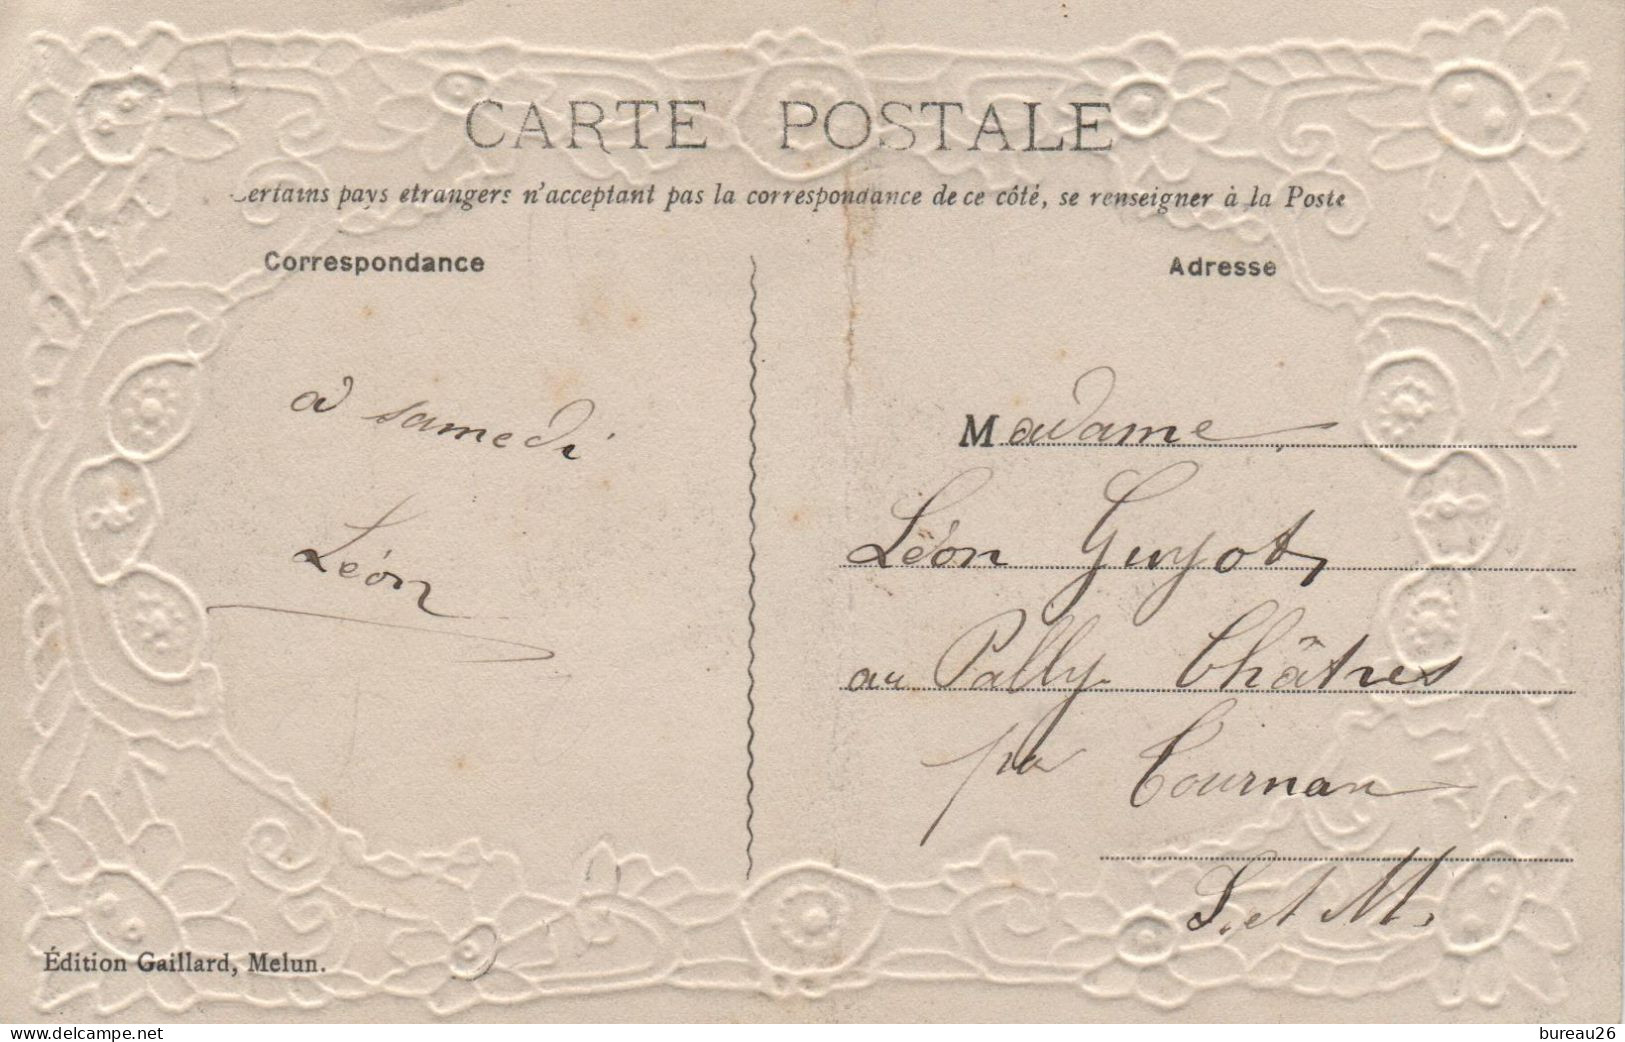 CARTE POSTALE
Certains pays etrangers n'acceptant pas la correspondance de ce côté, se renseigner à la Poste
Correspondance
Adresse
à samedi
Léon
Madame
Léon Guyot,
au Pally. Châtres
par Tournan
S. et M.
Édition Gaillard, Melun.
https://www.delcampe.net
bureau26